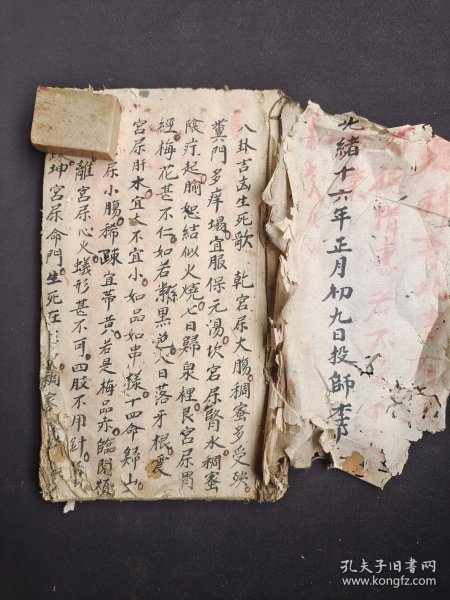 光緒十六年正月初九日投師李
八卦吉凶生死歌 乾宮屬大腸稠密多受殃
糞門多痒塌宜服保元湯坎宮屬腎水稠密
陰疔起腧恕結似火燒七日歸泉裡艮宮屬胃
經梅花甚不仁如若黑色八日落牙根震
宮屬肝木宜大不宜小如品如串樣十四命歸山
屬小腸稀疎宜蒂黃若是梅品亦臨閻
離宮屬心火蟻形甚不可四肢不用針
坤宮屬命門生死在
孔夫子旧书网
www.kongfz.com